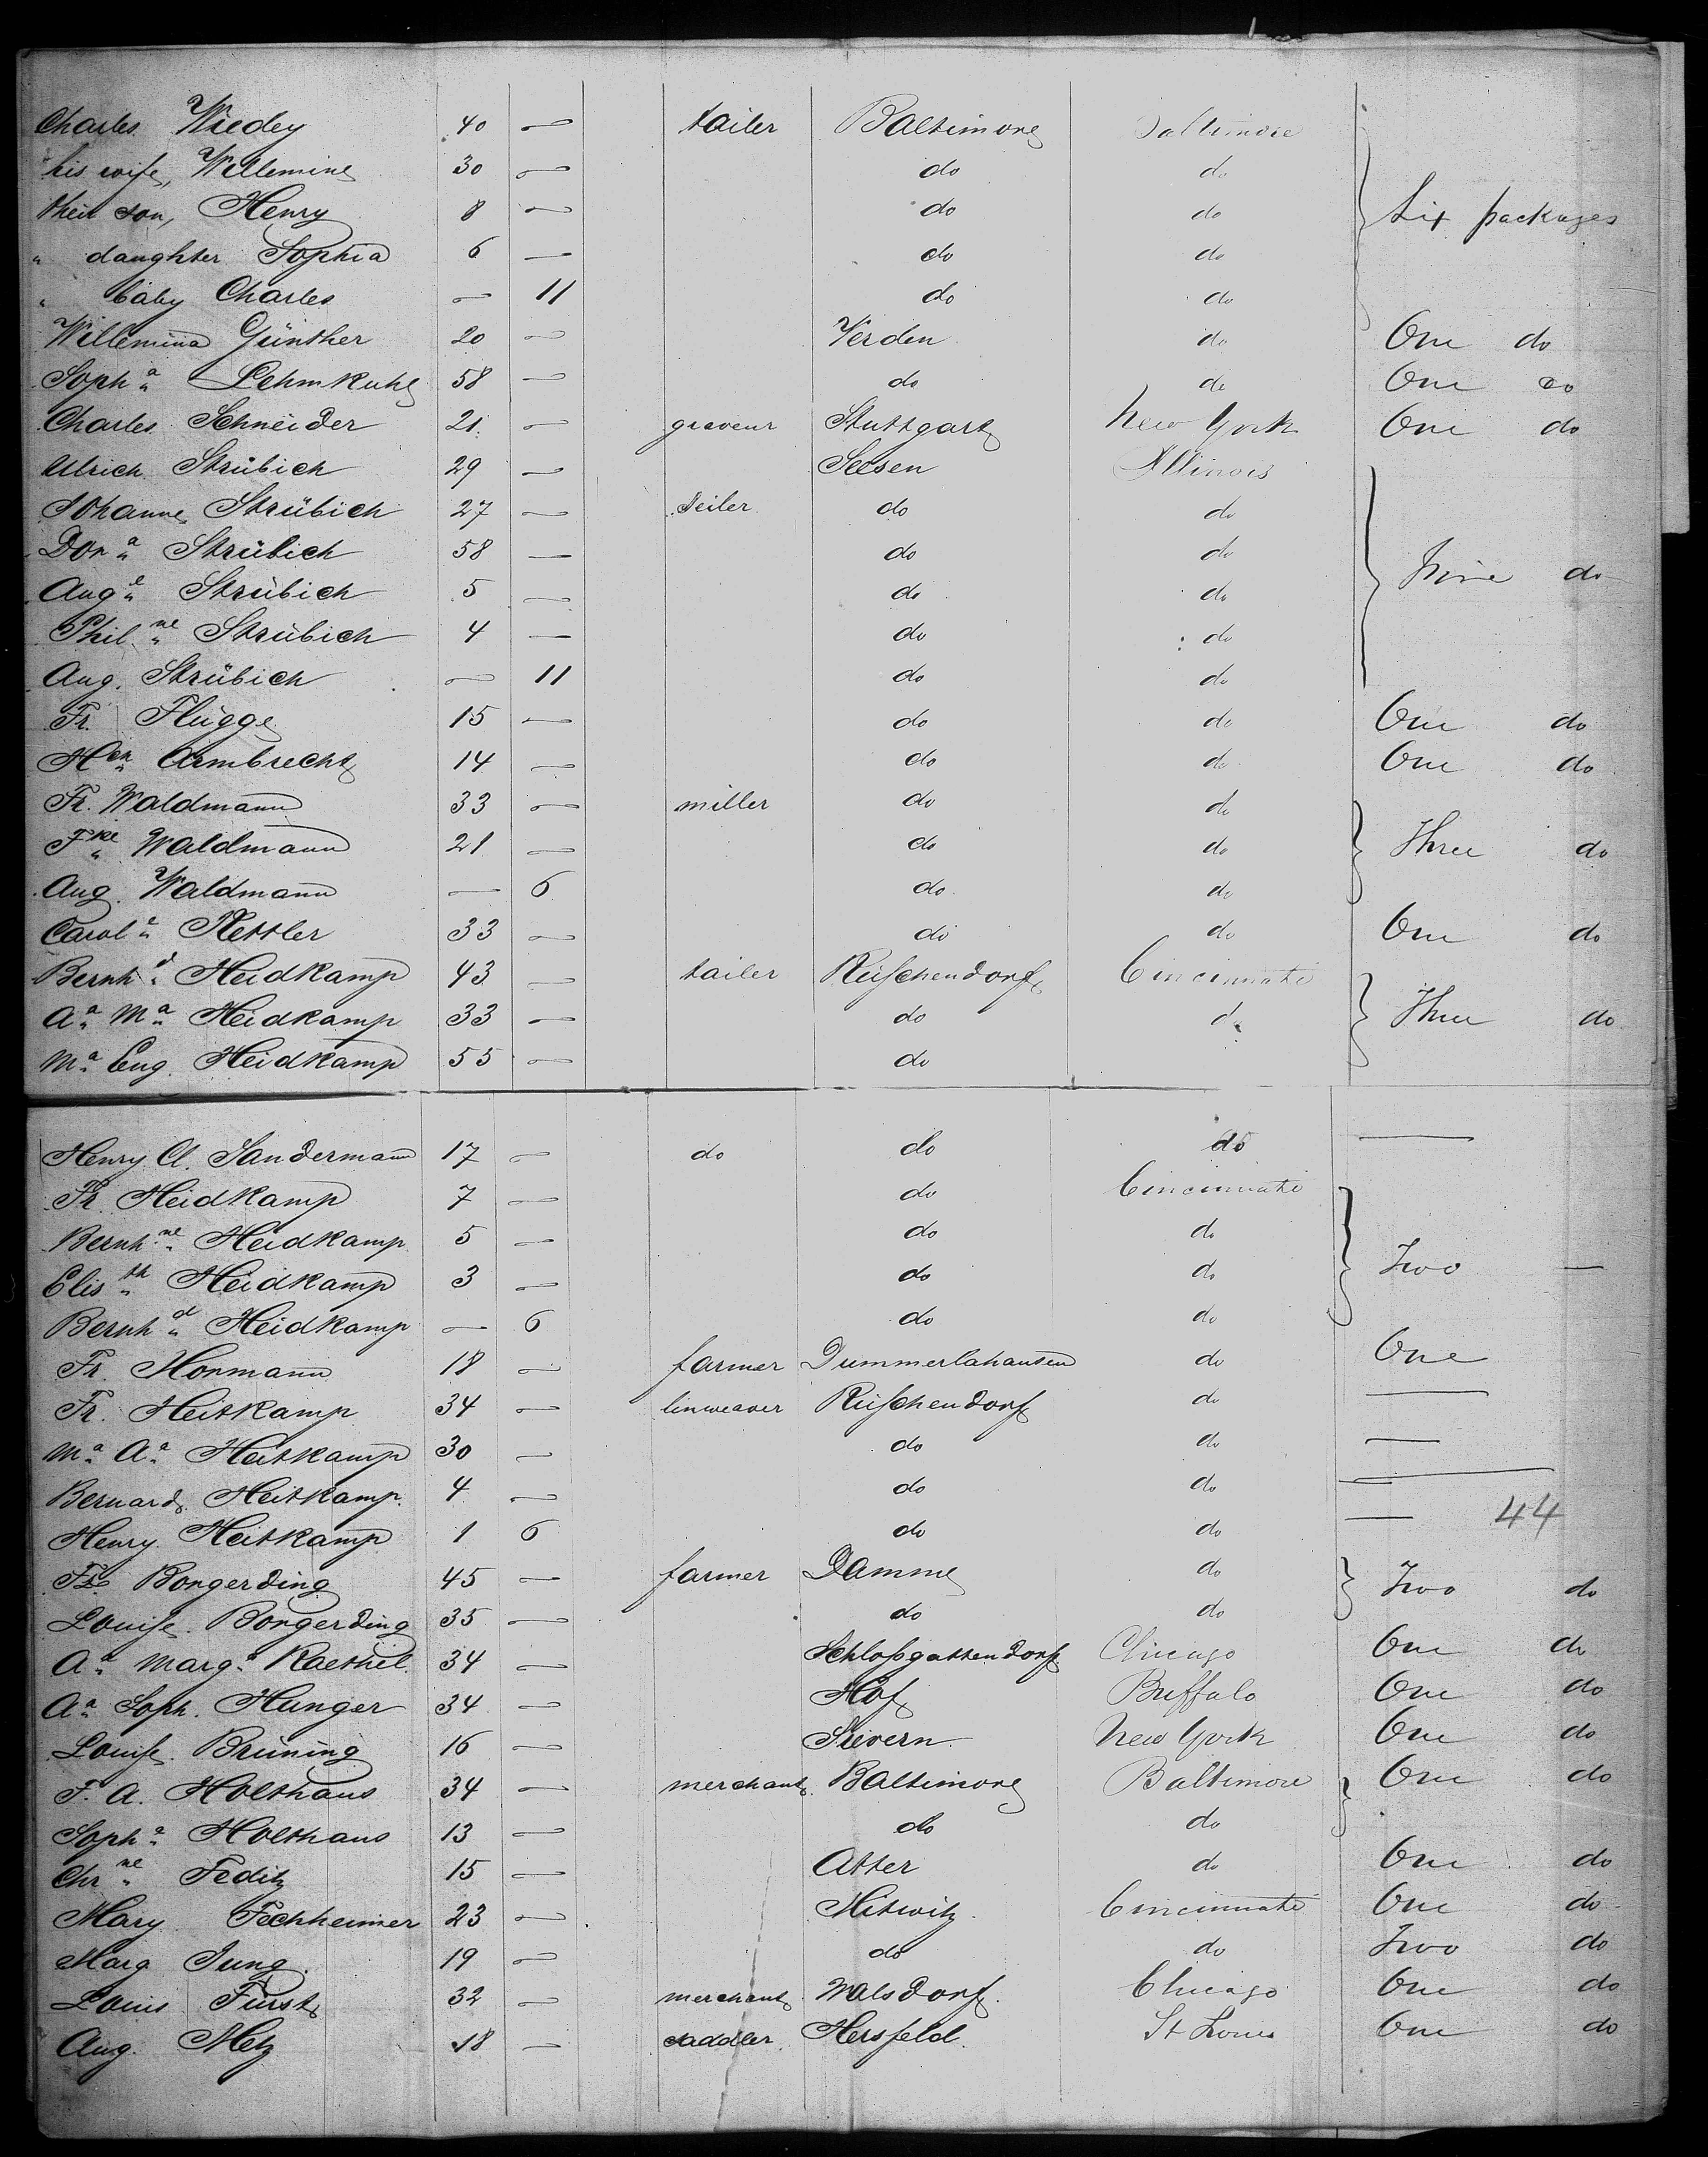 Charles Wiedey 40 — tailer Baltimore Baltimore
his wife, Willemine 30 — do do
their son, Henry 8 — do do Six packages
" daughter Sophia 6 — do do
" baby Charles — 11 do do
Willemina Günther 20 — Verden do One do
Soph.a Lehmkuhl 58 — do do One do
Charles Schneider 21. — graveur Stuttgart New York One do
Ulrich Strübich 29 — Seesen Illinois
Johanne Strübich 27 — seiler do do
Dor.a Strübich 58 — do do Nine do
Aug.e Strübich 5 — do do
Phil.ne Strübich 4 — do do
Aug. Strübich — 11 do do
Fr. Flügge 15 — do do One do
Hen Armbrecht 14 — do do One do
Fr. Waldmann 33 — miller do do
Fke Waldmann 21 — do do Three do
Aug. Waldmann — 6 do do
Carol.e Kettler 33 — do do One do
Bernh.d Heidkamp 43 — tailer Rüschendorf Cincinnati
Aa Ma Heidkamp 33 — do do Three do
Ma Eng. Heidkamp 55 — do
Henry Cl. Sandermann 17 — do do do —
Fr. Heidkamp 7 — do Cincinnati
Bernh.ne Heidkamp 5 — do do
Elis.th Heidkamp 3 — do do Two —
Bernh.d Heidkamp — 6 do do
Fr. Hormann 18 — farmer Dummerlahausen do One
Fr. Heitkamp 34 — linweaver Rüschendorf do —
Ma Aa Heitkamp 30 — do do —
Bernard Heitkamp. 4 — do do —
Henry Heitkamp 1 6 do do — 44
Fr. Borgerding 45 — farmer Damme do Two do
Louise Borgerding 35 — do do
Aa Marg.a Raethel 34 — Schloßgattendorf Chicago One do
Aa Soph. Hunger 34 — Hof Buffalo One do
Louise Brüning 16 — Sievern New York One do
F. A. Holthaus 34 — merchant Baltimore Baltimore One do
Soph.e Holthaus 13 — do do
Chr.ne Feditz 15 — Atter do One do
Mary Fechheimer 23 — Mitwitz Cincinnati One do
Marg Jung. 19 — do do Two do
Louis Fürst 32 — merchant Walsdorf. Chicago One do
Aug. Metz 18 — saddler. Hersfeld St Louis One do